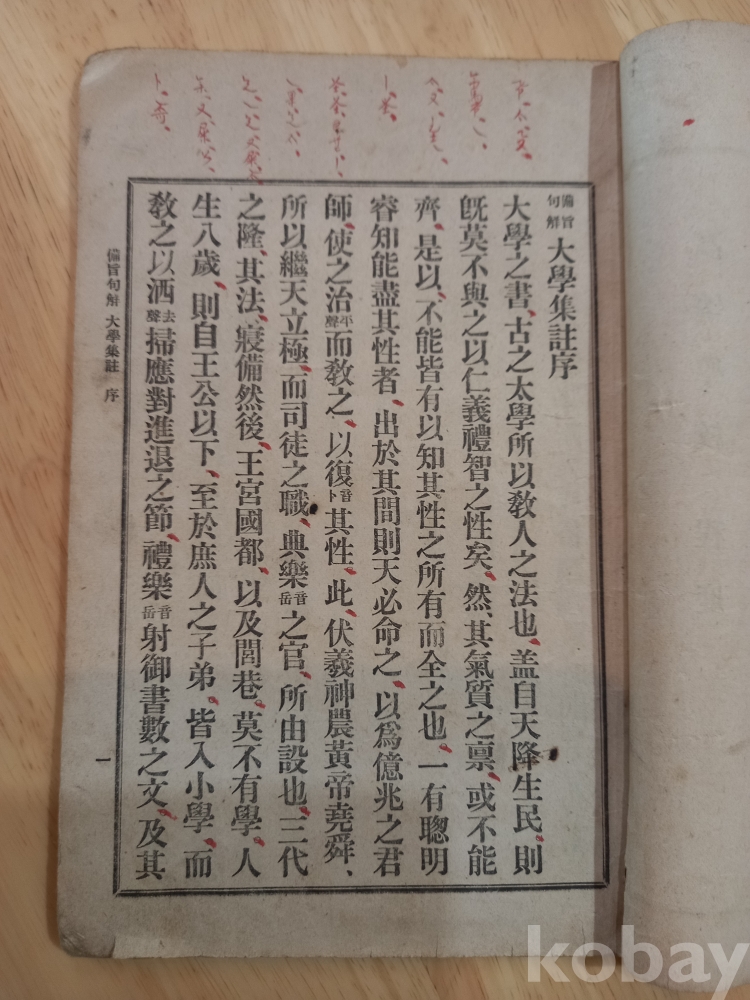 備旨句解 大學集註序
大學之書、古之太學所以敎人之法也、盖自天降生民、則
旣莫不與之以仁義禮智之性矣、然、其氣質之禀、或不能
齊、是以、不能皆有以知其性之所有而全之也、一有聰明
睿知能盡其性者、出於其間則天必命之、以爲億兆之君
師、使之治平聲而敎之、以復音卜其性、此、伏羲神農黃帝堯舜、
所以繼天立極、而司徒之職、典樂音岳之官、所由設也、三代
之隆、其法、寖備然後、王宮國都、以及閭巷、莫不有學、人
生八歲、則自王公以下、至於庶人之子弟、皆入小學、而
敎之以洒去聲掃應對進退之節、禮樂音岳射御書數之文、及其
備旨句解 大學集註 序
一
kobay